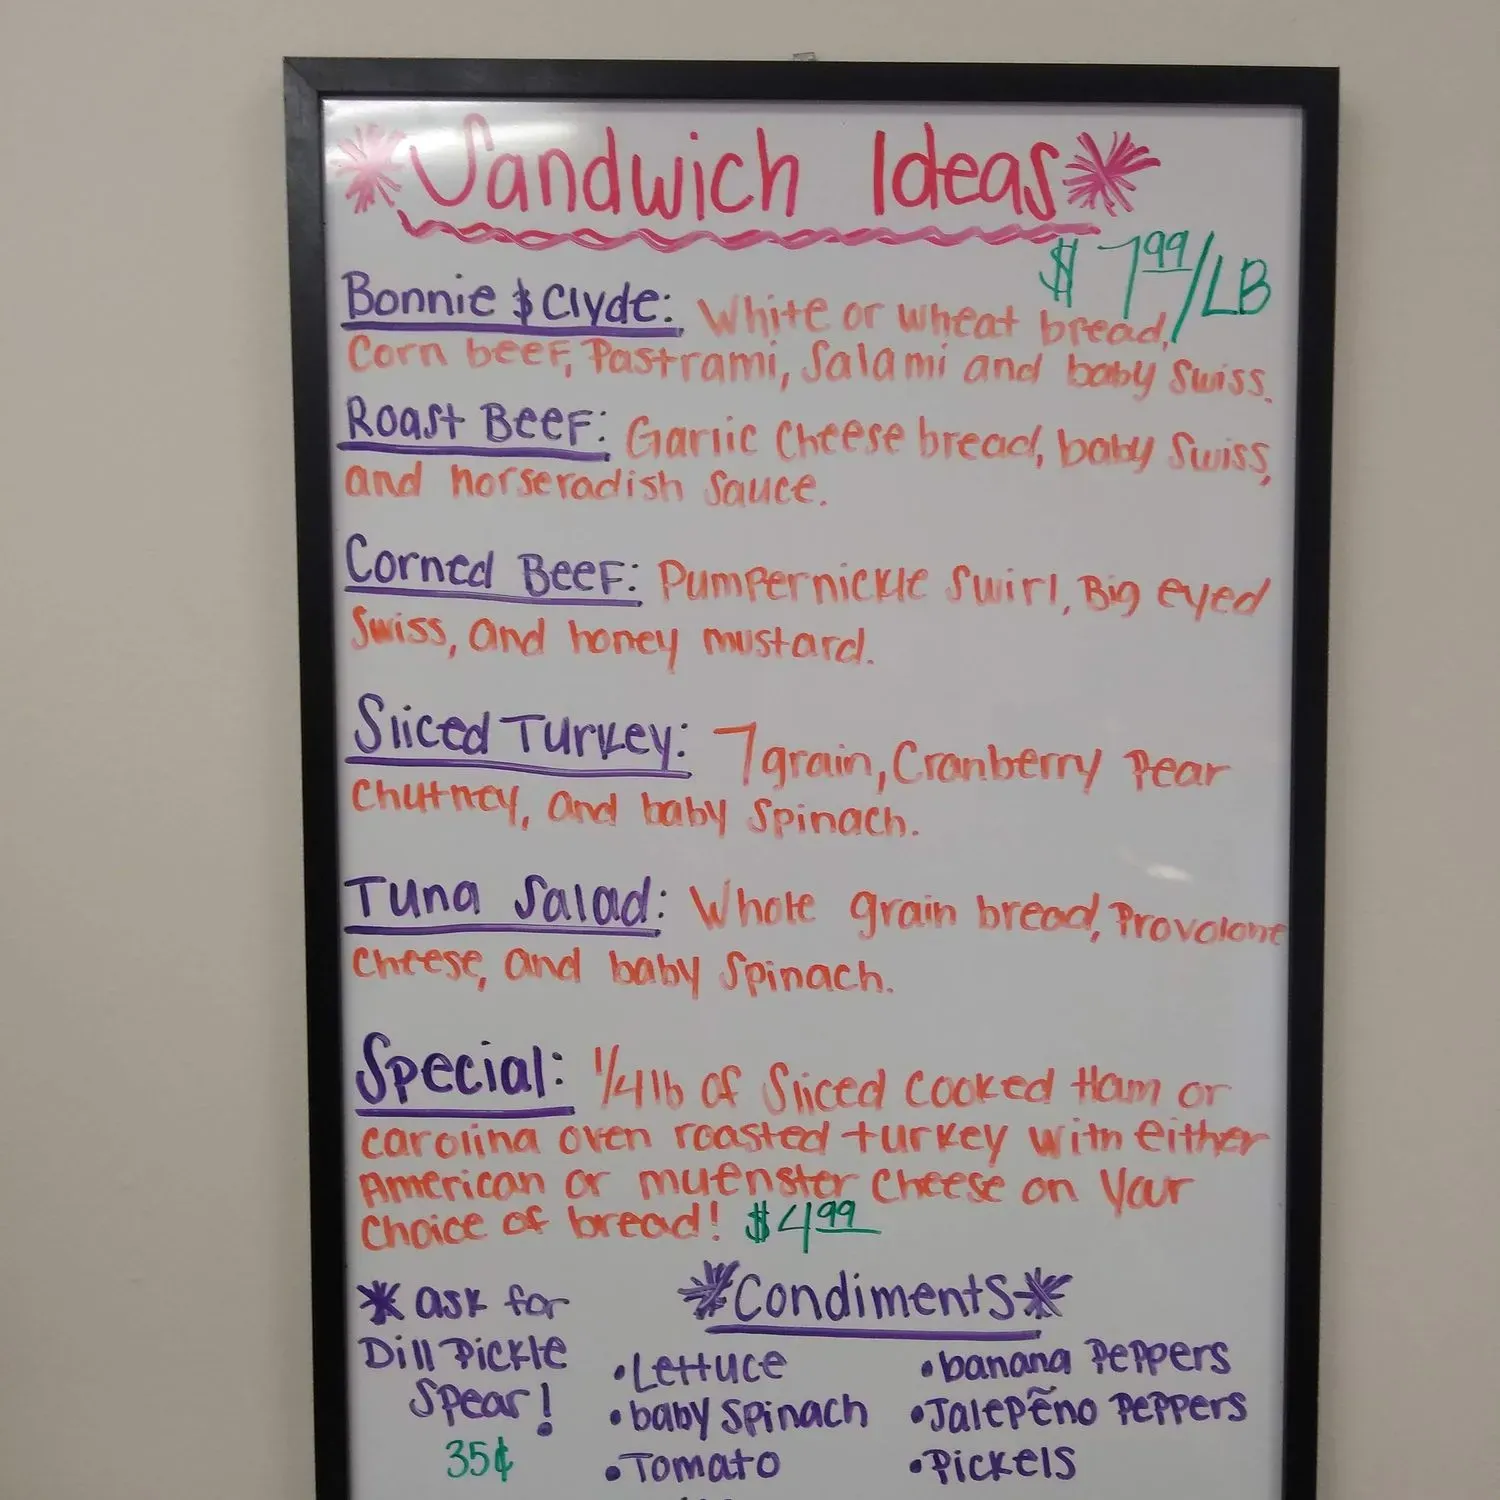 Sandwich Ideas
$7.99/LB
Bonnie & Clyde: White or wheat bread,
Corn beef, Pastrami, Salami and baby Swiss.
Roast Beef: Garlic Cheese bread, baby Swiss,
and horseradish Sauce.
Corned Beef: Pumpernickle Swirl, Big eyed
Swiss, and honey mustard.
Sliced Turkey: 7 grain, Cranberry Pear
Chutney, and baby Spinach.
Tuna Salad: Whole grain bread, Provolone
Cheese, and baby Spinach.
Special: 1/4 lb of Sliced Cooked Ham or
carolina oven roasted turkey with either
American or muenster Cheese on Your
Choice of bread! $4.99
*ask for
Dill Pickle
Spear!
35¢
*Condiments*
•Lettuce
•baby Spinach
•Tomato
•banana Peppers
•Jalepeño Peppers
•Pickels